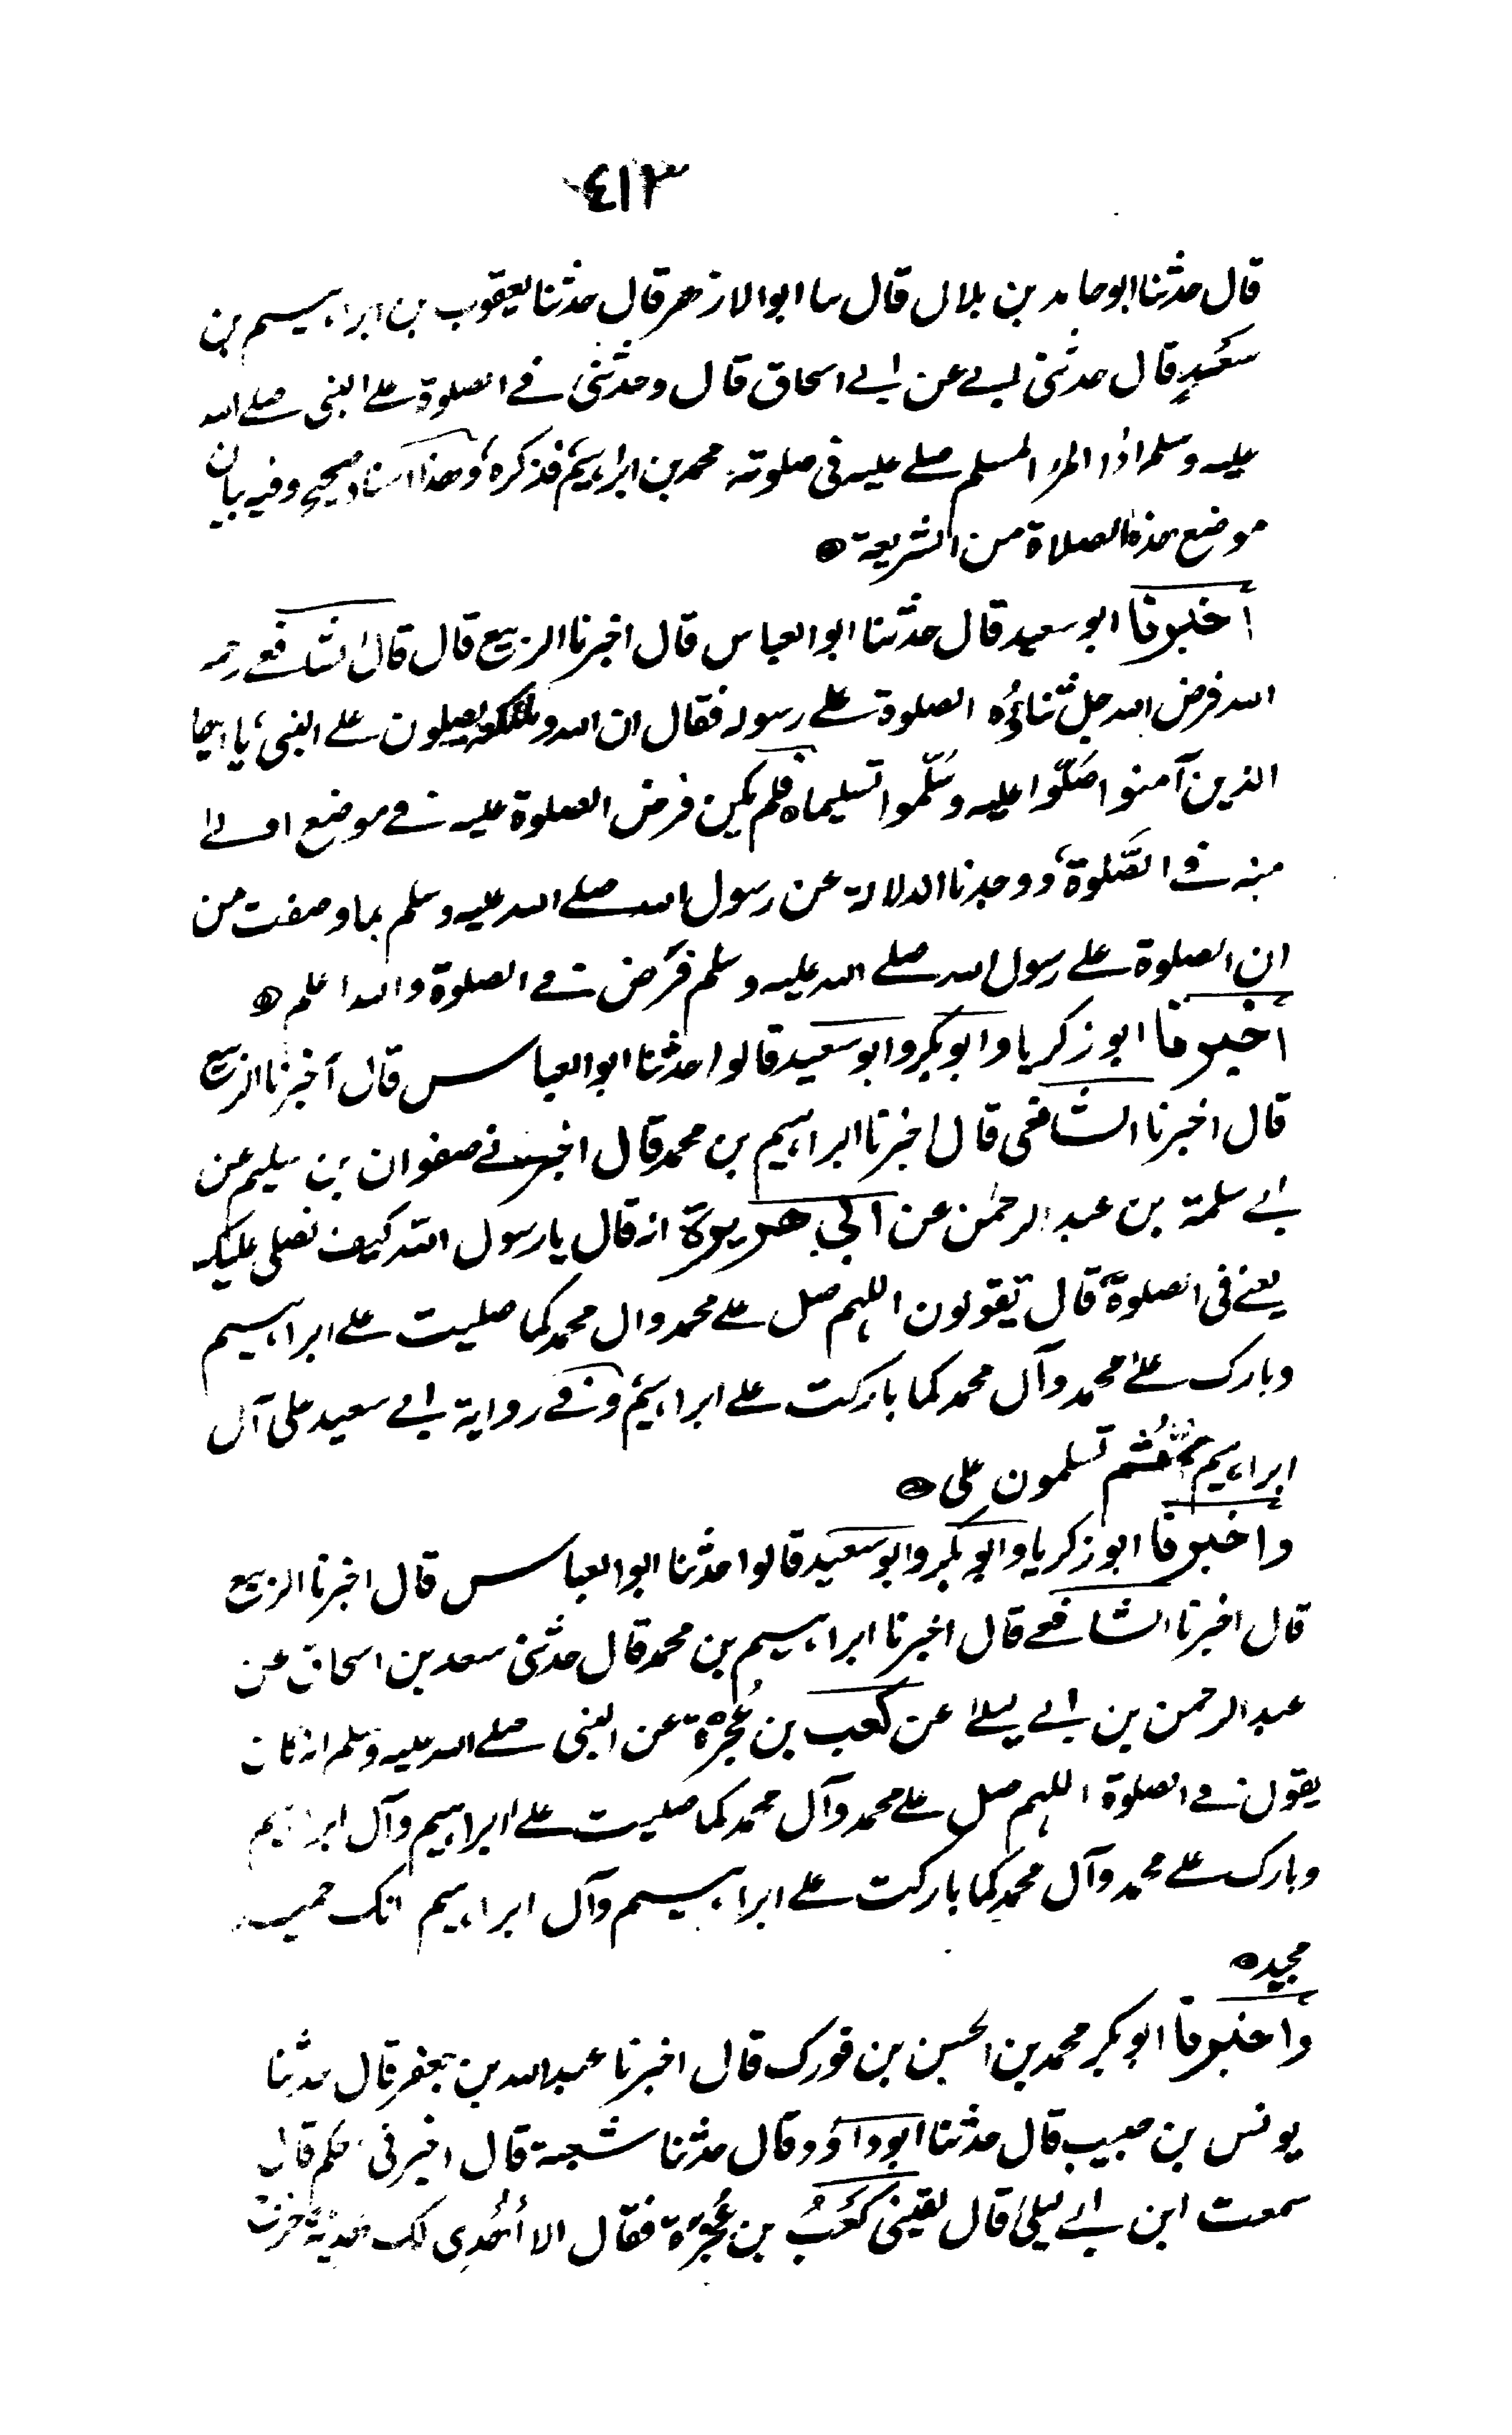 ٤١٣
قال حدثنا ابو حامد بن بلال قال سا ابو الازهر قال حدثنا يعقوب بن ابراهيم بن
سعيد قال حدثنى ابى عن ابى اسحاق قال وحدثنى فى الصلوة على النبى صلى الله
عليه وسلم اذا المرء المسلم صلى عليه فى صلوته محمد بن ابراهيم فذكره وهذا اسناد صحيح وفيه بيان
موضع هذه الصلاة من الشريعة
أخبرنا ابو سعيد قال حدثنا ابو العباس قال اخبرنا الربيع قال قال الشافعى رحمه
الله فرض الله جل ثناؤه الصلوة على رسوله فقال ان الله وملئكته يصلون على النبى يا ايها
الذين آمنوا صلّوا عليه وسلّموا تسليما فلم يكن فرض الصلوة عليه فى موضع اولى
منه فى الصَّلوة، ووجدنا الدلالة عن رسول الله صلى الله عليه وسلم بما وصفت من
ان الصلوة على رسول الله صلى الله عليه وسلم فرض فى الصلوة والله اعلم
أخبرنا ابو زكريا وابو بكر وابو سعيد قالوا حدثنا ابو العباس قال أخبرنا الربيع
قال اخبرنا الشافعى قال اخبرنا ابراهيم بن محمد قال اخبرنى صفوان بن سليم عن
ابى سلمة بن عبد الرحمٰن عن ابى هريرة انه قال يا رسول الله كيف نصلى عليك
يعنى فى الصلوة قال تقولون اللهم صل على محمد وال محمد كما صليت على ابراهيم
وبارك على محمد وآل محمد كما باركت على ابراهيم وفى رواية ابى سعيد على آل
ابراهيم ثم تسلمون على
وأخبرنا ابو زكريا وابو بكر وابو سعيد قالوا حدثنا ابو العباس قال اخبرنا الربيع
قال اخبرنا الشافعى قال اخبرنا ابراهيم بن محمد قال حدثنى سعد بن اسحاق عن
عبد الرحمن بن ابى ليلى عن كعب بن عُجرة عن النبى صلى الله عليه وسلم انه كان
يقول فى الصلوة اللهم صل على محمد وآل محمد كما صليت على ابراهيم وآل ابراهيم
وبارك على محمد وآل محمد كما باركت على ابراهيم وآل ابراهيم انك حميد
مجيد
وأخبرنا ابو بكر محمد بن الحسن بن فورك قال اخبرنا عبد الله بن جعفر قال حدثنا
يونس بن حبيب قال حدثنا ابو داؤد قال حدثنا شعبة قال اخبرنى حكم قال
سمعت ابن ابى ليلى قال لقينى كَعْبُ بن عُجْرَة فقال الا أُهْدِى لك هدية خرج